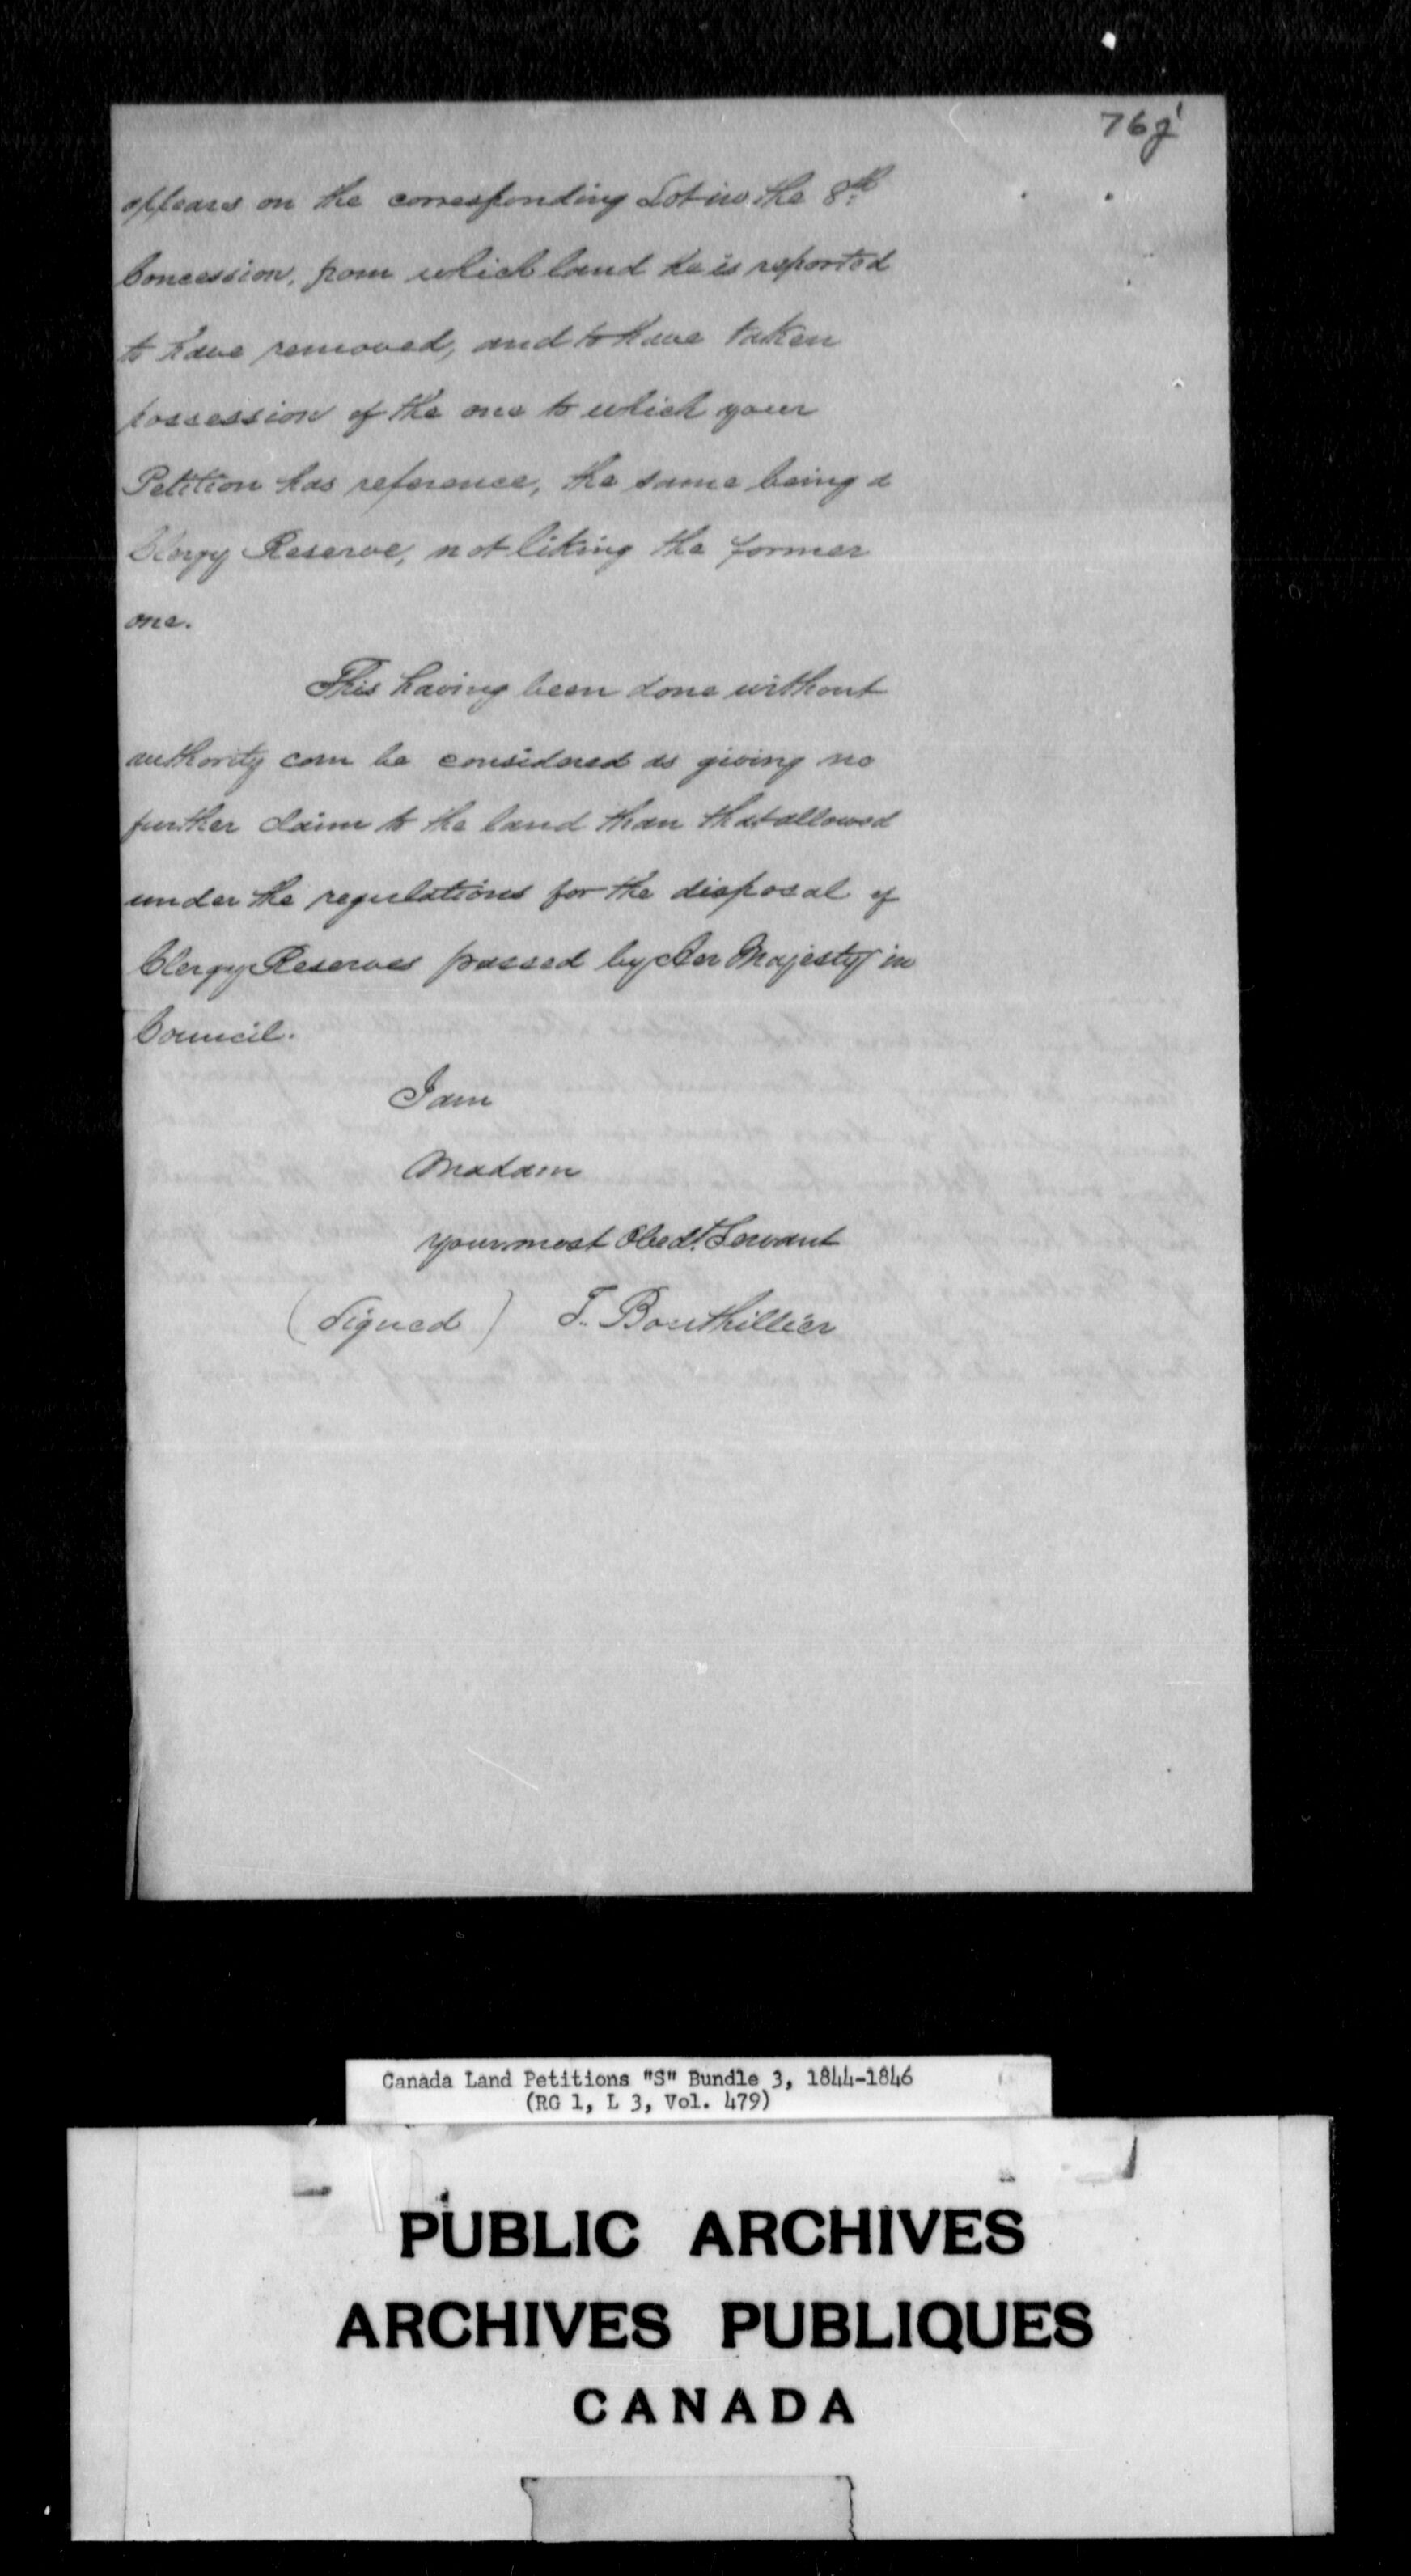 76j
appears on the corresponding Lot in the 8th
Concession, from which land he is reported
to have removed, and to have taken
possession of the one to which your
Petition has reference, the same being a
Clergy Reserve, not liking the former
one.
This having been done without
authority can be considered as giving no
further claim to the land than that allowed
under the regulations for the disposal of
Clergy Reserves passed by Her Majesty in
Council.
I am
Madam
your most Obedt. Servant
(Signed) T. Bouthillier
Canada Land Petitions "S" Bundle 3, 1844-1846
(RG 1, L 3, Vol. 479)
PUBLIC ARCHIVES
ARCHIVES PUBLIQUES
CANADA